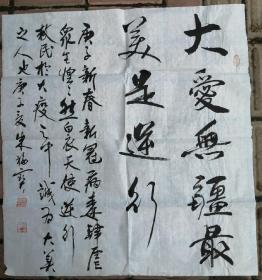 大愛無疆最
美是逆行
庚子新春新冠病毒肆虐
眾生惶之然白衣天使逆行
救民於大疫之中誠為大美
之人也庚子夏朱